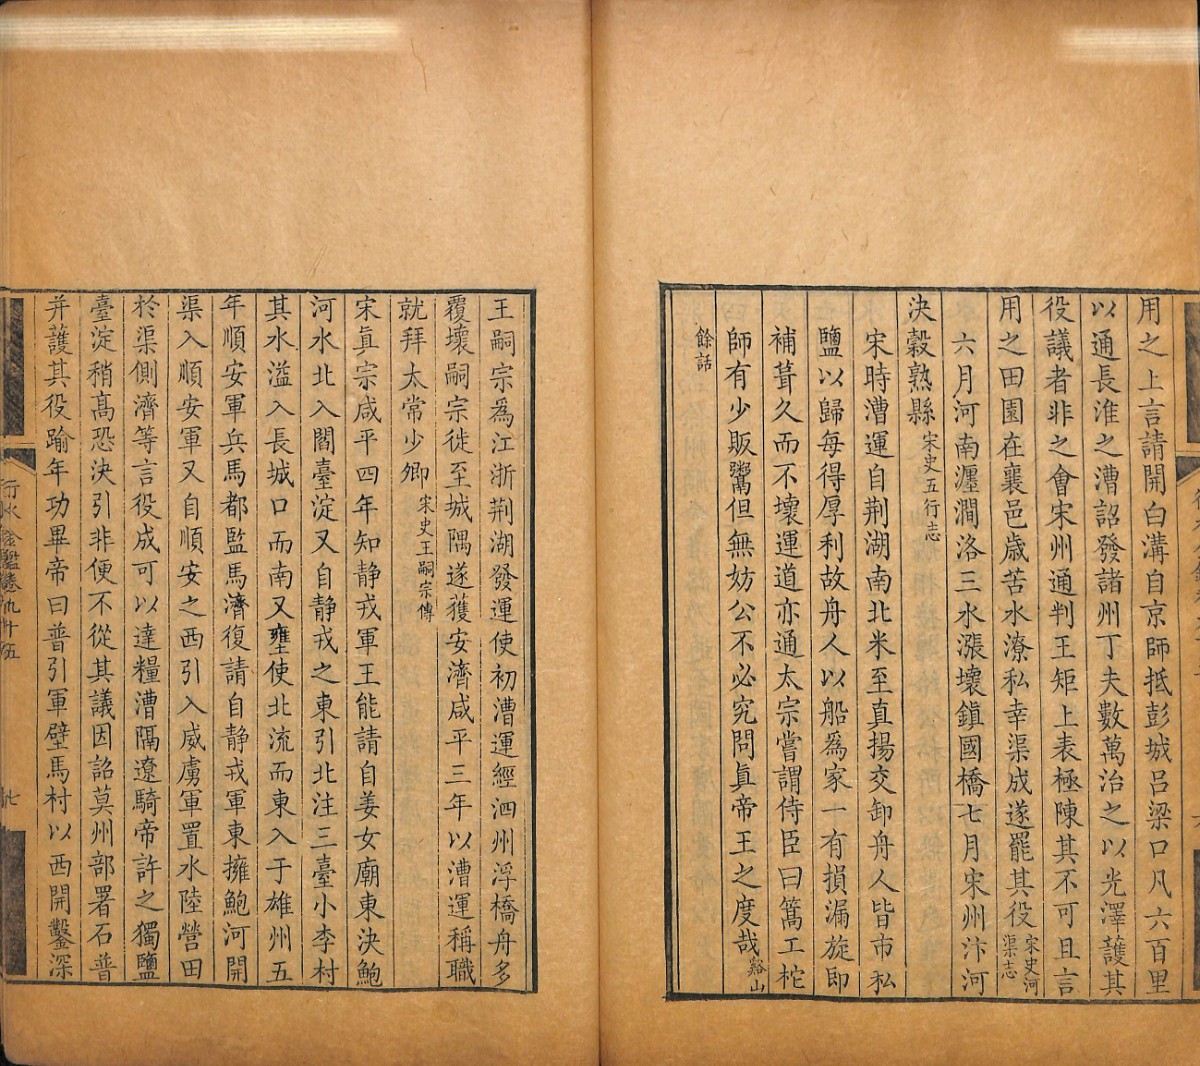 用之上言請開白溝自京師抵彭城呂梁口凡六百里
以通長淮之漕詔發諸州丁夫數萬治之以光澤護其
役議者非之會宋州通判王矩上表極陳其不可且言
用之田園在襄邑歲苦水潦私幸渠成遂罷其役宋史河渠志
六月河南瀍澗洛三水漲壞鎮國橋七月宋州汴河
決穀熟縣宋史五行志
宋時漕運自荆湖南北米至真揚交卸舟人皆市私
鹽以歸每得厚利故舟人以船爲家一有損漏旋即
補葺久而不壞運道亦通太宗嘗謂侍臣曰篙工柁
師有少販鬻但無妨公不必究問眞帝王之度哉谿山
餘話
王嗣宗爲江浙荆湖發運使初漕運經泗州浮橋舟多
覆壞嗣宗徙至城隅遂獲安濟咸平三年以漕運稱職
就拜太常少卿宋史王嗣宗傳
宋眞宗咸平四年知静戎軍王能請自姜女廟東決鮑
河水北入閻臺淀又自静戎之東引北注三臺小李村
其水溢入長城口而南又壅使北流而東入于雄州五
年順安軍兵馬都監馬濟復請自静戎軍東擁鮑河開
渠入順安軍又自順安之西引入威虜軍置水陸營田
於渠側濟等言役成可以達糧漕隔遼騎帝許之獨鹽
臺淀稍高恐決引非便不從其議因詔莫州部署石普
并護其役踰年功畢帝曰普引軍壁馬村以西開鑿深
行水金鑑卷九十五
七